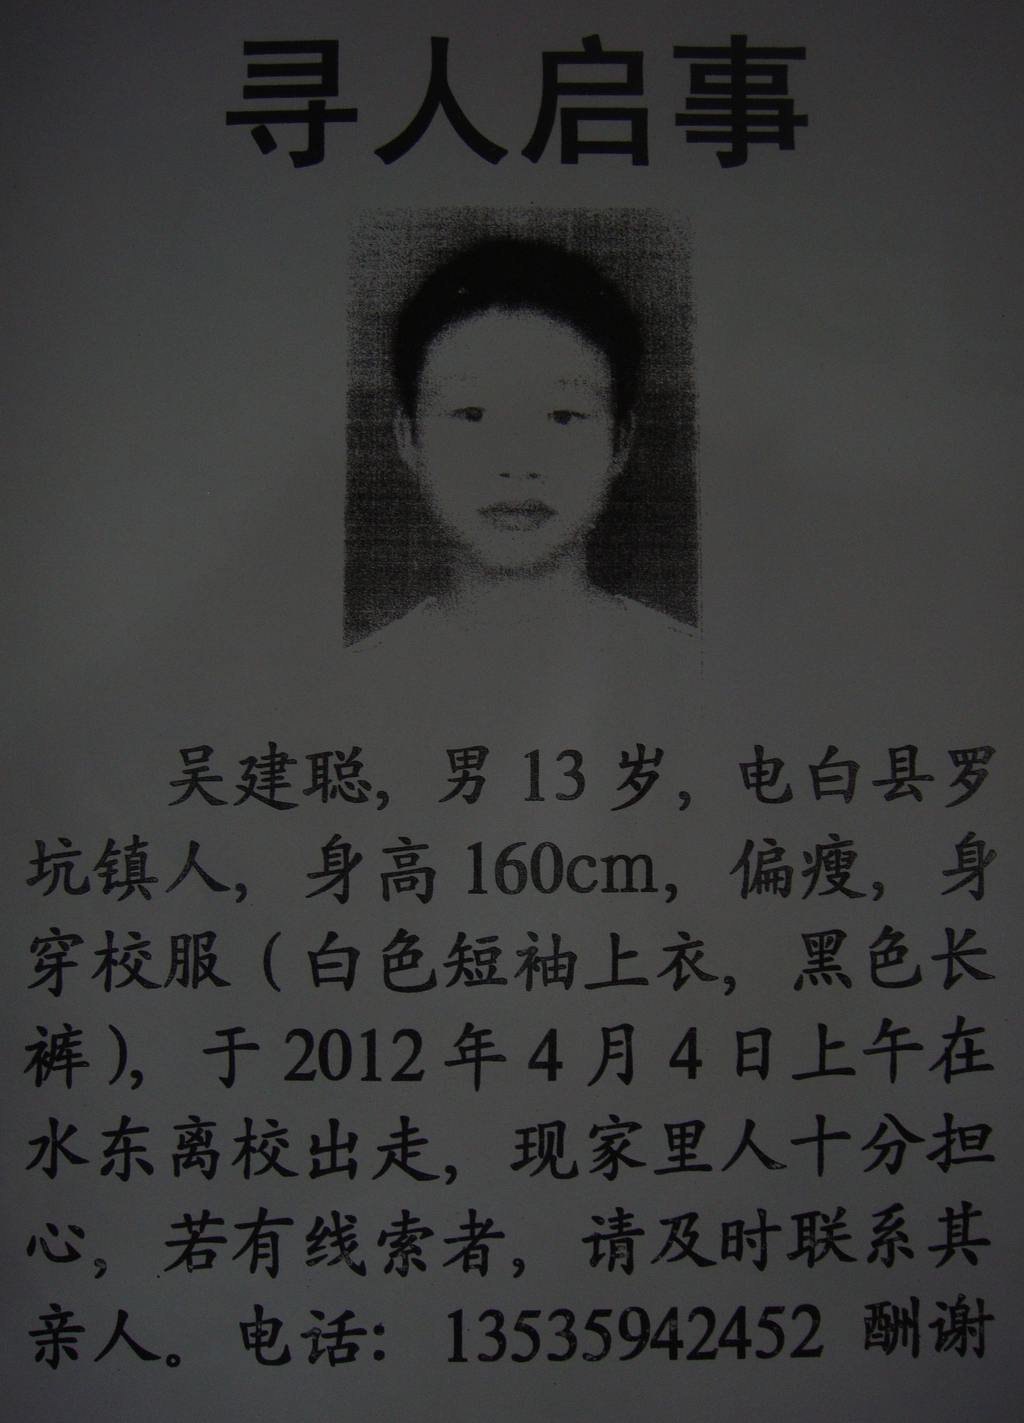 寻人启事
吴建聪，男 13 岁，电白县罗
坑镇人，身高 160cm，偏瘦，身
穿校服（白色短袖上衣，黑色长
裤），于 2012 年 4 月 4 日上午在
水东离校出走，现家里人十分担
心，若有线索者，请及时联系其
亲人。电话：13535942452 酬谢